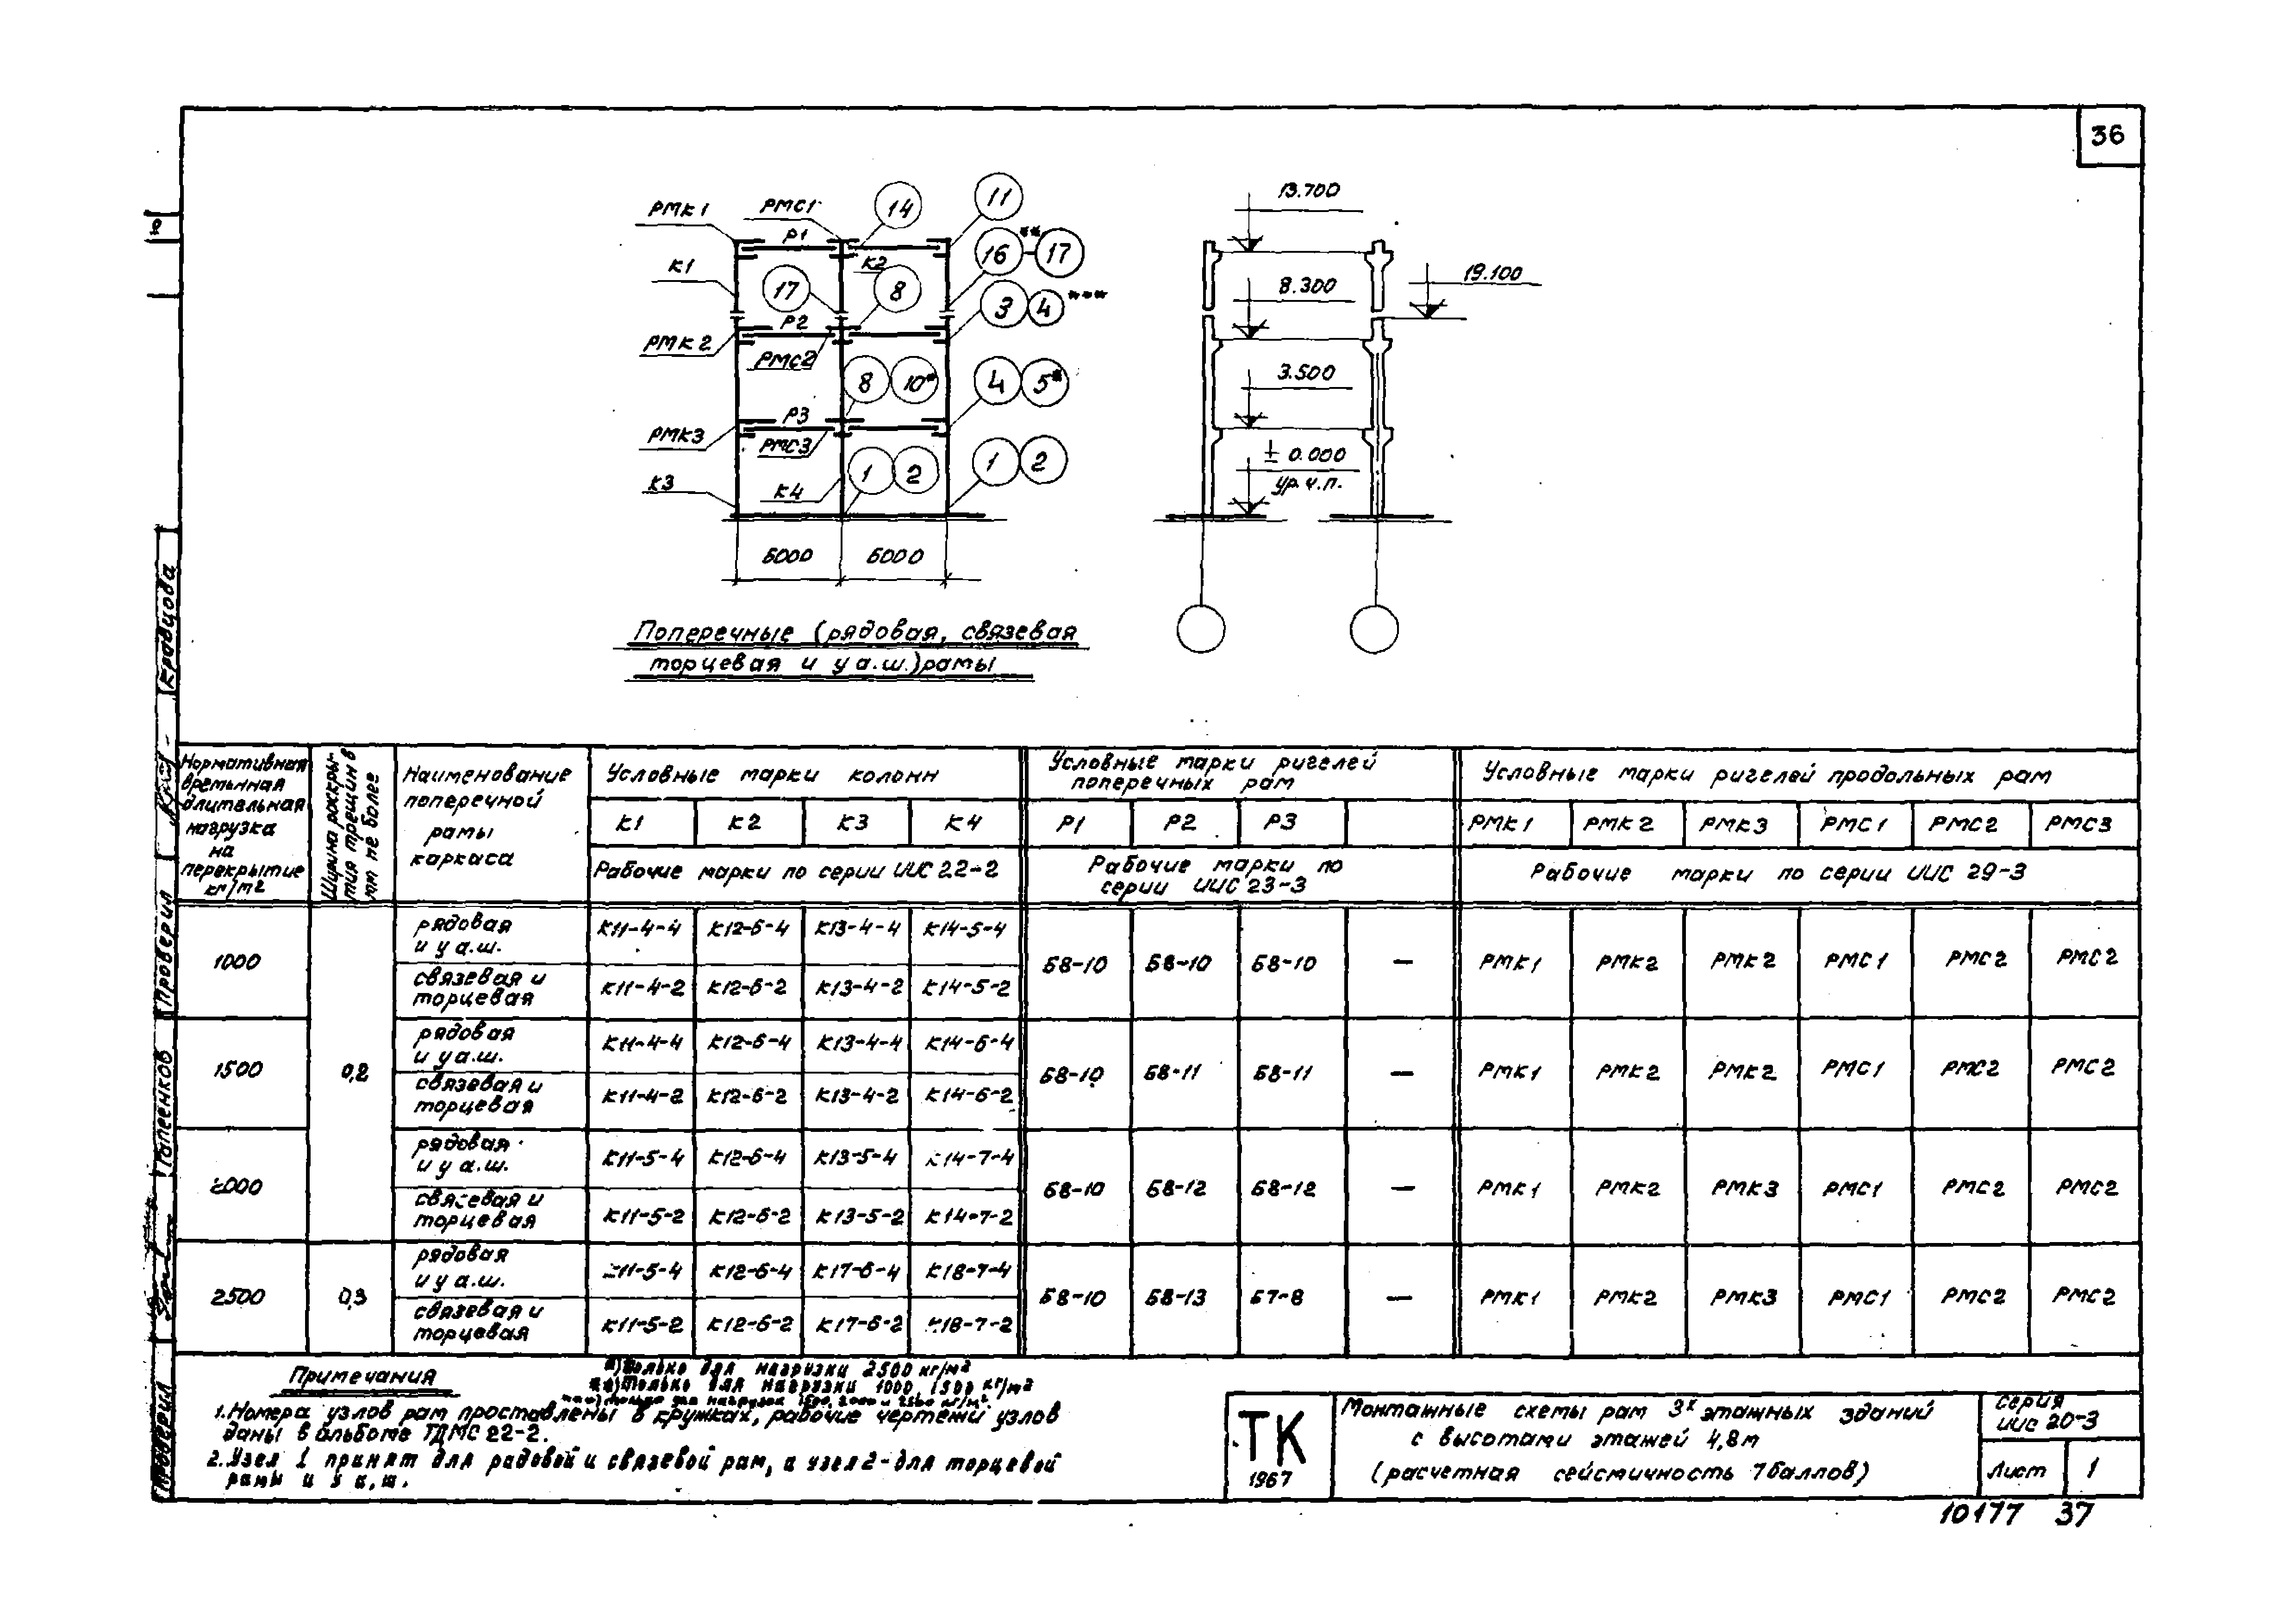 36
РМК1
РМС1
14
11
Р1
16** - 17
К1
К2
17
8
3 4***
Р2
РМК2
РМС2
8 10*
4 5*
Р3
РМК3
РМС3
1 2
1 2
К3
К4
6000 6000
Поперечные (рядовая, связевая
торцевая и у а.ш.) рамы
13.700
19.100
8.300
3.500
± 0.000
ур.ч.п.
Кравцова
Проверил
Гапеенков
Проверил
Нормативная временная длительная нагрузка на перекрытие кг/м2
Ширина раскрытия трещин в мм не более
Наименование поперечной рамы каркаса
Условные марки колонн
Условные марки ригелей поперечных рам
Условные марки ригелей продольных рам
К1 К2 К3 К4 Р1 Р2 Р3 РМК1 РМК2 РМК3 РМС1 РМС2 РМС3
Рабочие марки по серии ИИС 22-2
Рабочие марки по серии ИИС 23-3
Рабочие марки по серии ИИС 29-3
1000
рядовая и у а.ш. К11-4-4 К12-6-4 К13-4-4 К14-5-4
связевая и торцевая К11-4-2 К12-6-2 К13-4-2 К14-5-2
Б8-10 Б8-10 Б8-10 — РМК1 РМК2 РМК2 РМС1 РМС2 РМС2
1500 0,2
рядовая и у а.ш. К11-4-4 К12-6-4 К13-4-4 К14-6-4
связевая и торцевая К11-4-2 К12-6-2 К13-4-2 К14-6-2
Б8-10 Б8-11 Б8-11 — РМК1 РМК2 РМК2 РМС1 РМС2 РМС2
2000
рядовая и у а.ш. К11-5-4 К12-6-4 К13-5-4 К14-7-4
связевая и торцевая К11-5-2 К12-6-2 К13-5-2 К14-7-2
Б8-10 Б8-12 Б8-12 — РМК1 РМК2 РМК3 РМС1 РМС2 РМС2
2500 0,3
рядовая и у а.ш. К11-5-4 К12-6-4 К17-6-4 К18-7-4
связевая и торцевая К11-5-2 К12-6-2 К17-6-2 К18-7-2
Б8-10 Б8-13 Б7-8 — РМК1 РМК2 РМК3 РМС1 РМС2 РМС2
Примечания
*) Только для нагрузки 2500 кг/м2
**) Только для нагрузки 1000, 1500 кг/м2
***) Только для нагрузок 1500, 2000 и 2500 кг/м2.
1. Номера узлов рам проставлены в кружках, рабочие чертежи узлов
даны в альбоме ТДМС 22-2.
2. Узел 1 принят для рядовой и связевой рам, а узел 2 - для торцевой
рамы и у а.ш.
ТК
1967
Монтажные схемы рам 3х этажных зданий
с высотами этажей 4,8м
(расчетная сейсмичность 7 баллов)
серия
ИИС 20-3
Лист 1
10177 37